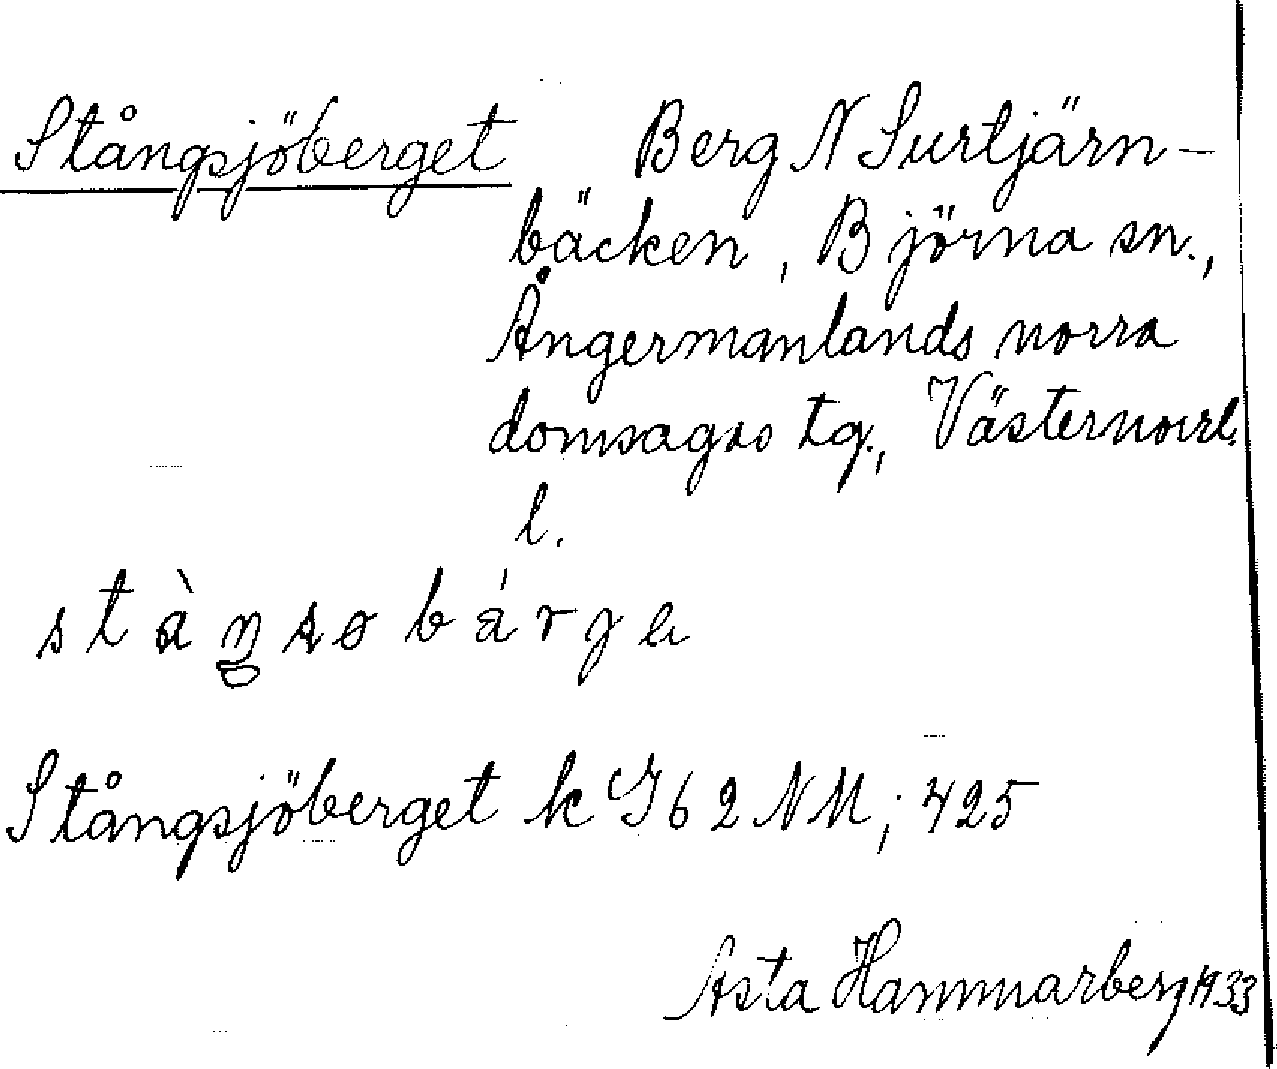 Stångsjöberget Berg N Surtjärn-
bäcken, Björna sn.,
Ångermanlands norra
domsagas tg., Västernorrl.
l.
stàŋsøbárge
Stångsjöberget k I62NM; 425
Asta Hammarberg 1933